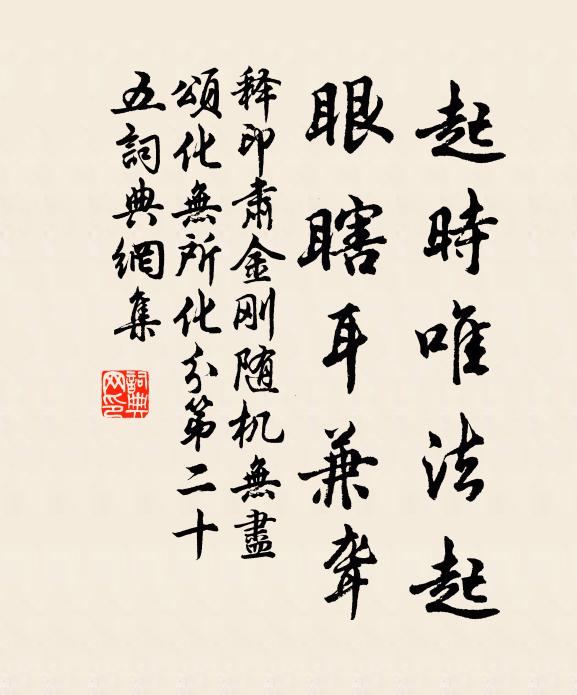 起時唯法起
眼瞎耳兼聾
释印肃金刚随机無盡
頌化無所化分第二十
五詞典網集
詞典
网印